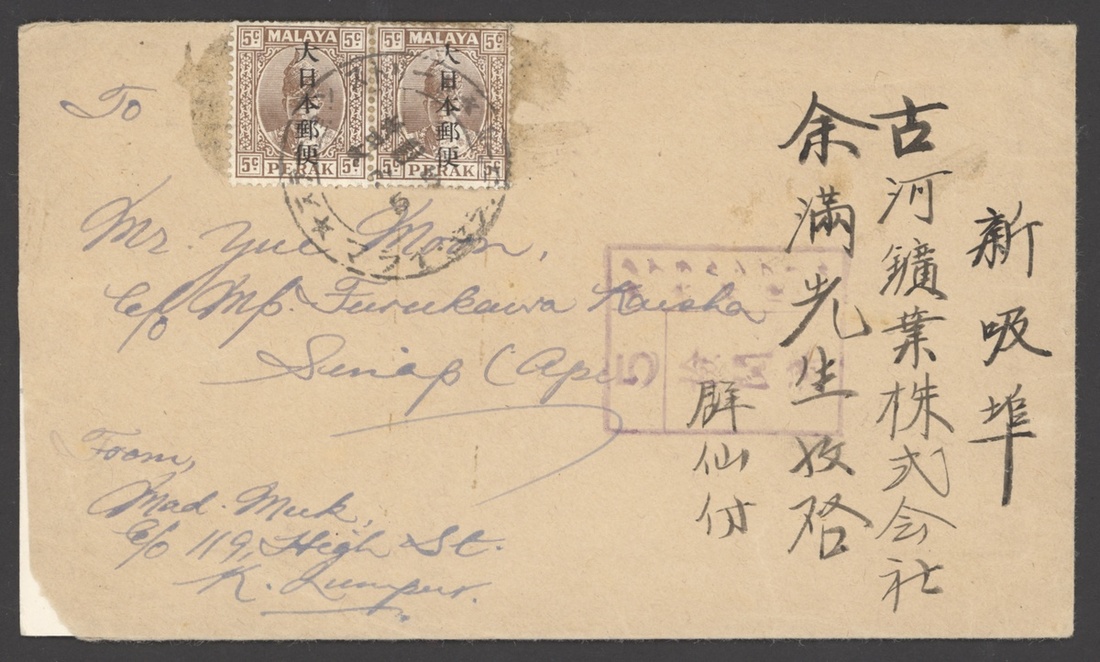 5¢ MALAYA 5¢
大日本郵便
5¢ PERAK 5¢
5¢ MALAYA 5¢
大日本郵便
5¢ PERAK 5¢
To
Mr. Yue Moon,
c/o M/s. Furukawa Kaisha
From,
Mad. Muk,
c/o 119, High St.
K. Lumpur.
新吸埠
古河鑛業株式会社
余滿先生收啓
仙付
5